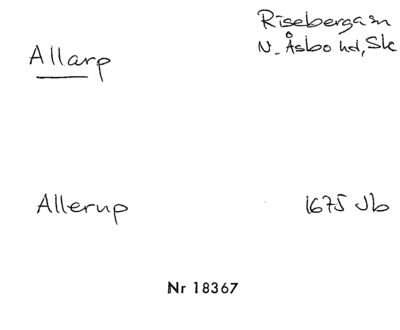 Riseberga sn
Allarp
N. Åsbo hd, Sk
Allerup
1675 Jb
Nr 18367